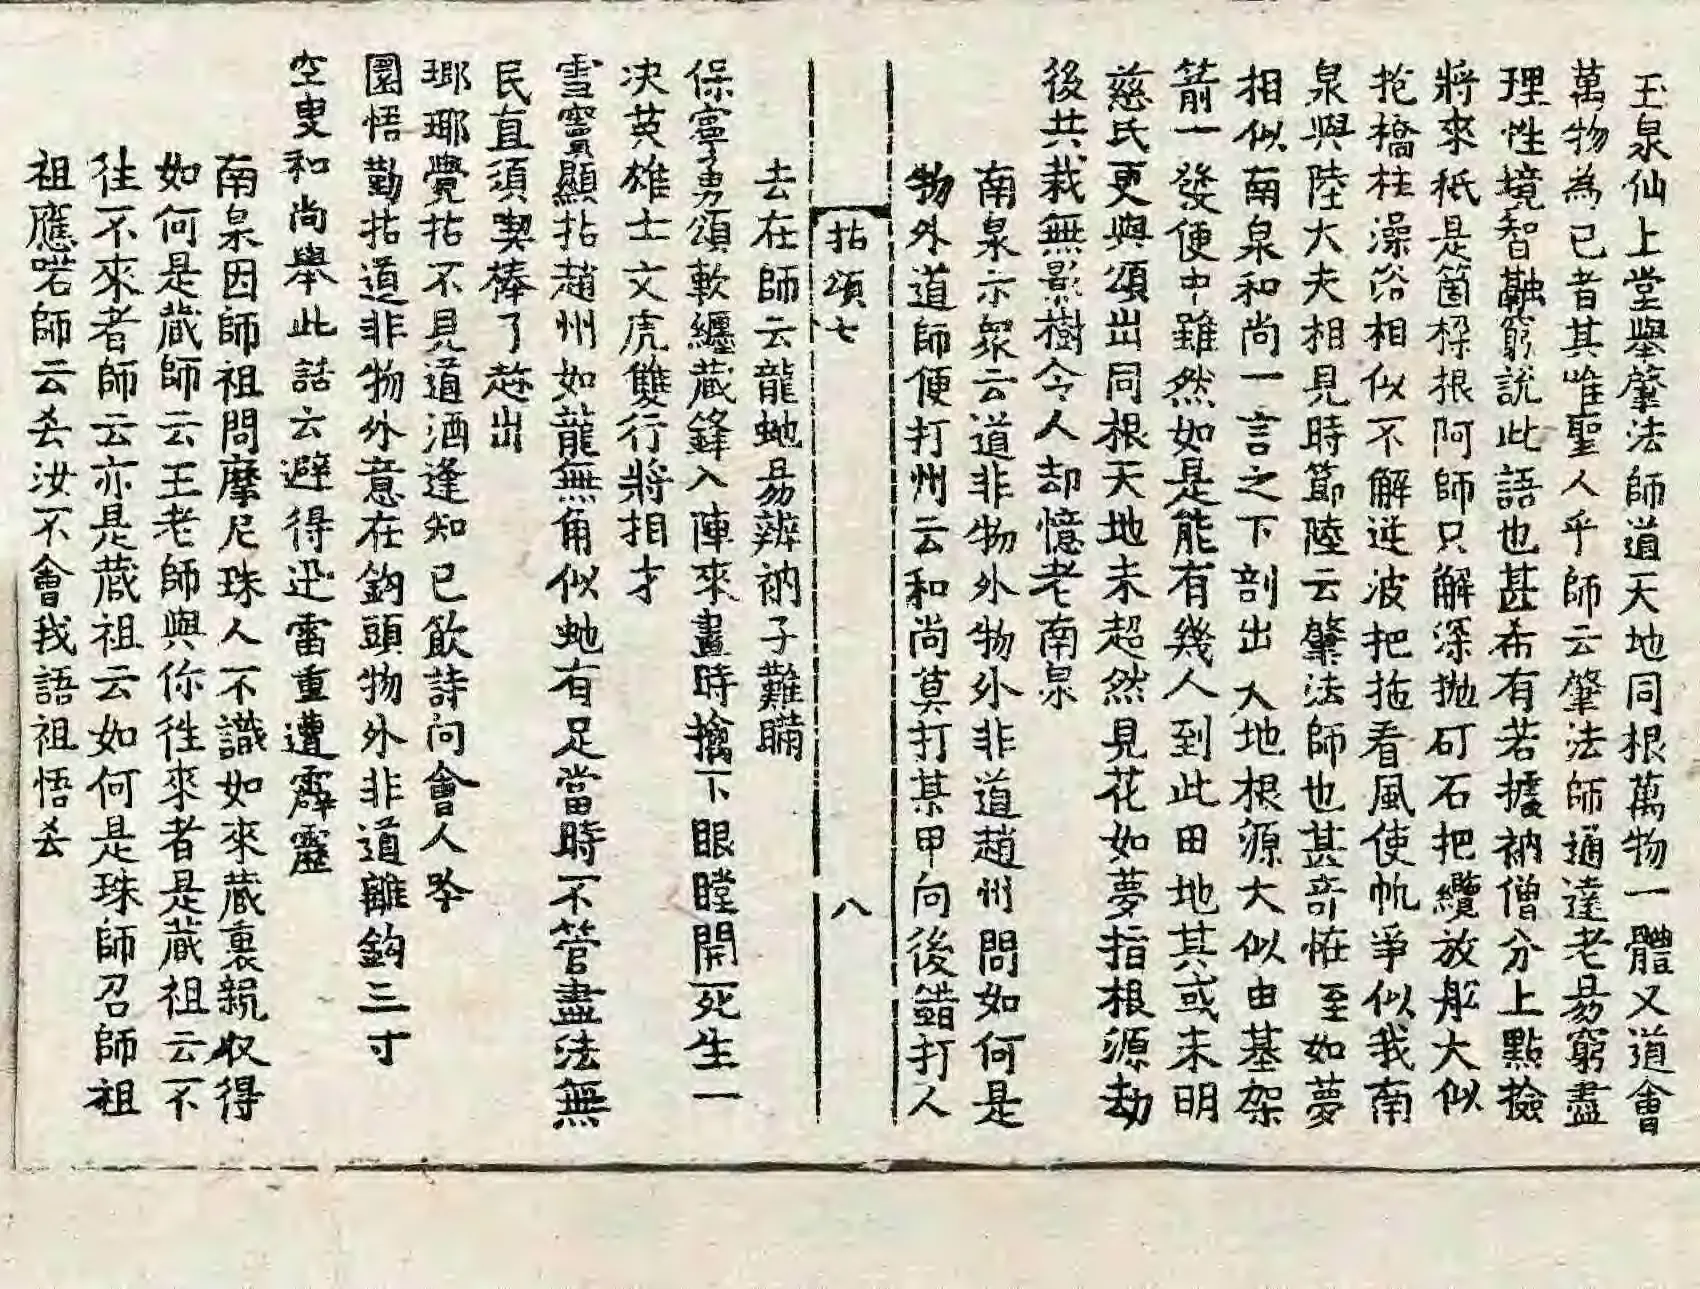 玉泉仙上堂舉肇法師道天地同根萬物一體又道會
萬物為己者其唯聖人乎師云肇法師通達老易窮盡
理性境智融窮說此語也甚希有若據衲僧分上點撿
將來秖是箇樑根阿師只解深拋矴石把纜放船大似
抱橋柱澡浴相似不解逆波把拖看風使帆爭似我南
泉與陸大夫相見時節陸云肇法師也甚竒恠至如夢
相似南泉和尚一言之下剖出大地根源大似由基架
箭一發便中雖然如是能有幾人到此田地其或未明
慈氏更與頌出同根天地未超然見花如夢指根源劫
後共栽無影樹令人却憶老南泉
南泉示眾云道非物外物外非道趙州問如何是
物外道師便打州云和尚莫打某甲向後錯打人
拈頌七
八
去在師云龍虵易辨衲子難瞞
保寧勇頌軟纏藏鋒入陣來晝時擒下眼瞠開死生一
决英雄士文虎雙行將相才
雪竇顯拈趙州如龍無角似虵有足當時不管盡法無
民直須喫棒了趂出
瑯琊覺拈不見道酒逢知已飲詩向會人吟
圜悟勤拈道非物外意在鈎頭物外非道離鈎三寸
空叟和尚舉此話云避得迅雷重遭霹靂
南泉因師祖問摩尼珠人不識如來藏裏親収得
如何是藏師云王老師與你徃來者是藏祖云不
徃不來者師云亦是藏祖云如何是珠師召師祖
祖應喏師云去汝不會我語祖悟去